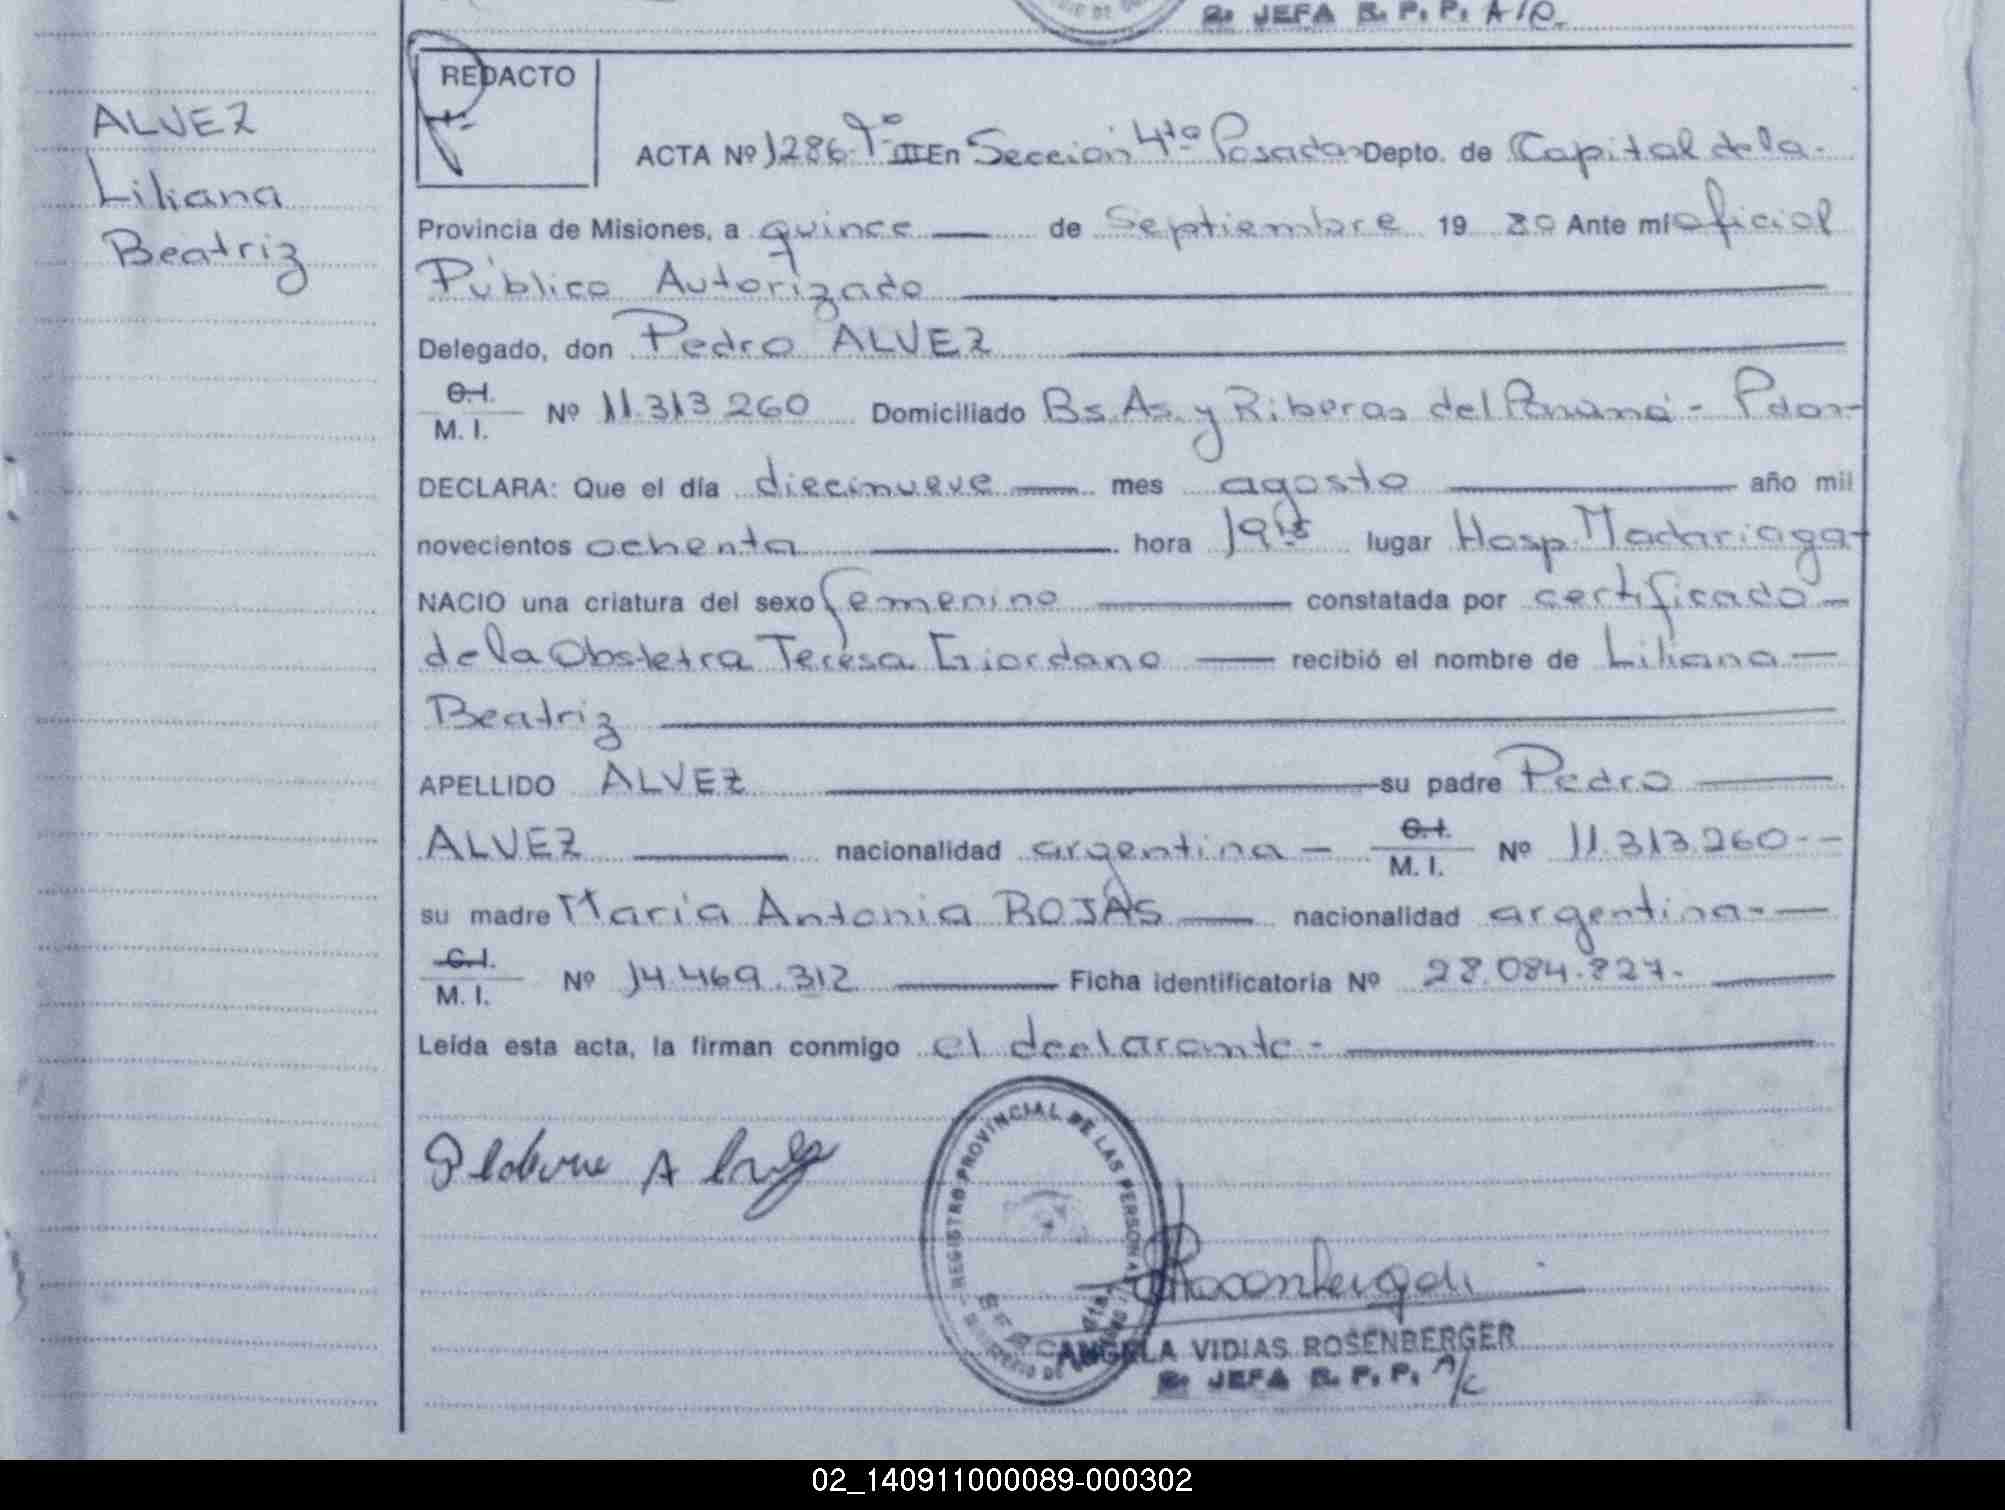 2: JEFA R. P. P. A/C.
REDACTO
ALVEZ
Liliana
Beatriz
ACTA Nº 1286 Tº III En Sección 4ta Posadas Depto. de Capital de la
Provincia de Misiones, a quince de Septiembre 19 80 Ante mi oficial
Público Autorizado
Delegado, don Pedro ALVEZ
C. I.
M. I. Nº 11.313.260 Domiciliado Bs. As. y Riberas del Paraná - Pdas-
DECLARA: Que el día diecinueve mes agosto año mil
novecientos ochenta hora 19 15 lugar Hosp. Madariaga
NACIO una criatura del sexo femenino constatada por certificado
de la Obstetra Teresa Giordano recibió el nombre de Liliana
Beatriz
APELLIDO ALVEZ su padre Pedro
ALVEZ nacionalidad argentina - C. I. M. I. Nº 11.313.260--
su madre María Antonia ROJAS nacionalidad argentina-
C. I.
M. I. Nº 14.469.312 Ficha identificatoria Nº 28.084.827-
Leída esta acta, la firman conmigo el declarante-
REGISTRO PROVINCIAL DE LAS PERSONAS
MINISTERIO DE GOBIERNO
ANGELA VIDIAS ROSENBERGER
2: JEFA R. P. P. A/C
02_140911000089-000302